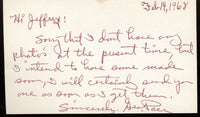 Feb 19, 1968
Hi Jeffrey!
Sorry that I don't have any
photo's at the present time but
I intend to have some made
soon, I will certainly send you
one as soon as I get them.
Sincerely,